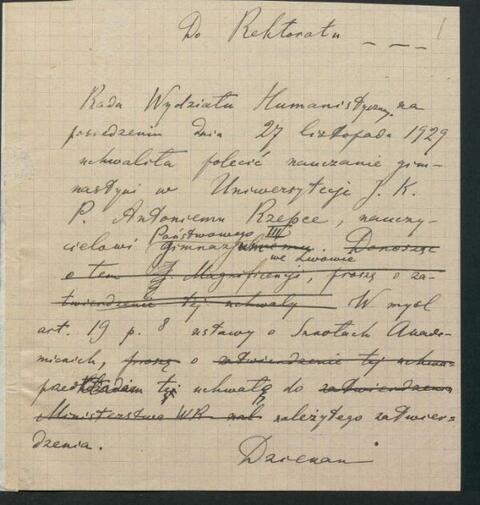 Do Rektoratu _ _ _ 1
Rada Wydziału Humanistyczn. na
posiedzeniu dnia 27 listopada 1929
uchwaliła polecić nauczanie gim-
nastyki w Uniwersytecie J. K.
P. Antoniemu Rzepce, nauczy-
Państwowego III
cielowi gimnazjalnemu. Donosząc
we Lwowie
o tem J. Magnificencji, proszę o za-
twierdzenie tej uchwały W myśl
art. 19 p. 8 ustawy o Szkołach Akade-
mickich, proszę o zatwierdzenie tej uchwa-
przedkładam tę uchwałę do zatwierdzenia
Ministerstwa WR należytego zatwier-
dzenia.
Dziekan